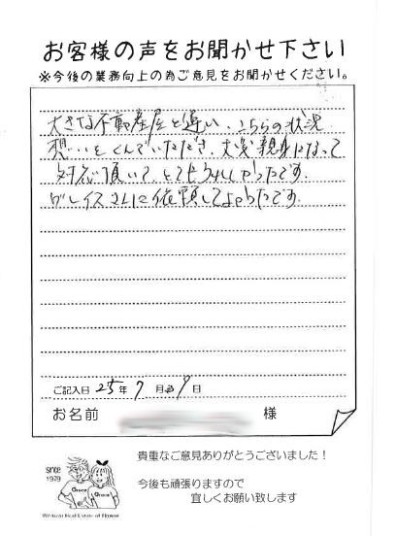 お客様の声をお聞かせ下さい
※今後の業務向上の為ご意見をお聞かせください。
大きな不動産屋と違い、こちらの状況
想いをくんでいただき、大変親身になって
対応頂いて、とてもうれしかったです。
グレイスさんに依頼してよかったです。
ご記入日 25年 7月 9日
お名前 様
貴重なご意見ありがとうございました！
since
1979
今後も頑張りますので
宜しくお願い致します